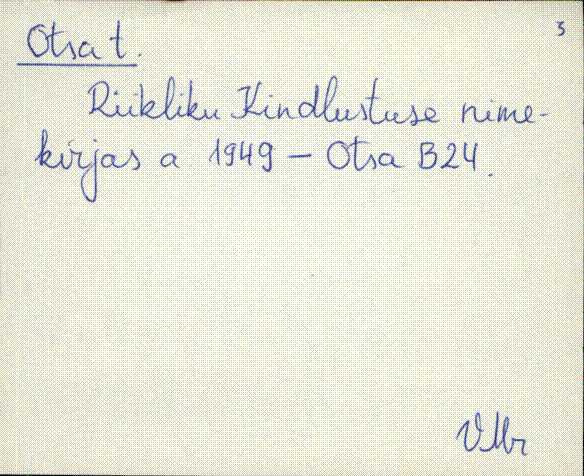 3
Otsa t.
Riikliku Kindlustuse nime-
kirjas a 1949 – Otsa B24.
VMr